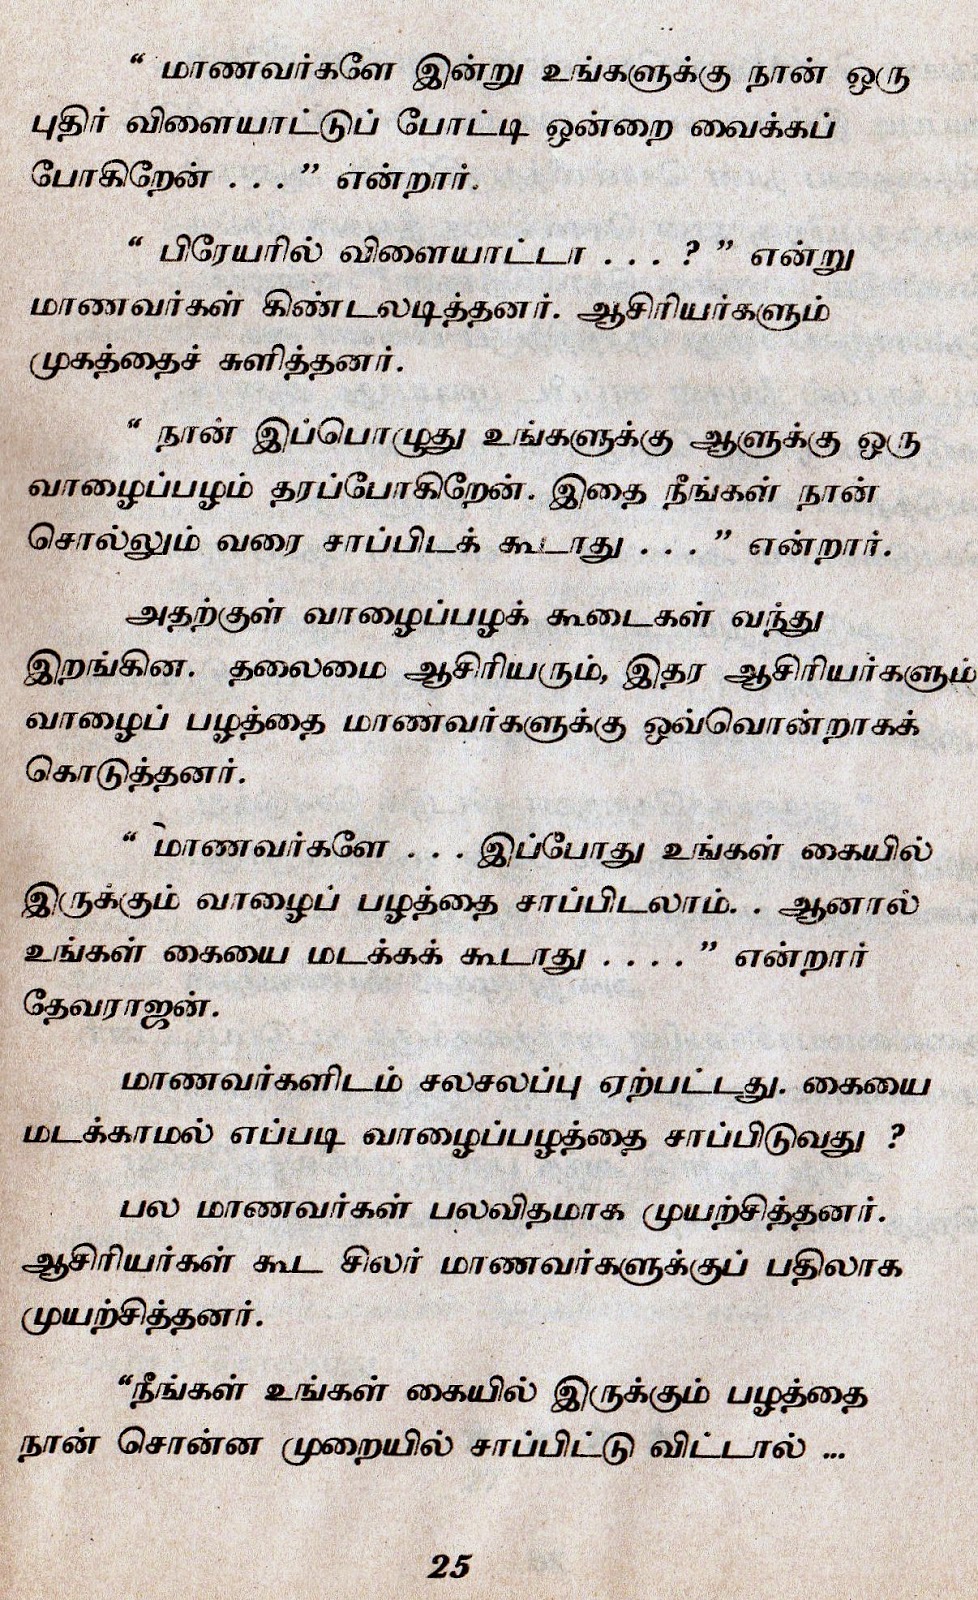 “ மாணவர்களே இன்று உங்களுக்கு நான் ஒரு
புதிர் விளையாட்டுப் போட்டி ஒன்றை வைக்கப்
போகிறேன் . . . ” என்றார்.
“ பிரேயரில் விளையாட்டா . . . ? ” என்று
மாணவர்கள் கிண்டலடித்தனர். ஆசிரியர்களும்
முகத்தைச் சுளித்தனர்.
“ நான் இப்பொழுது உங்களுக்கு ஆளுக்கு ஒரு
வாழைப்பழம் தரப்போகிறேன். இதை நீங்கள் நான்
சொல்லும் வரை சாப்பிடக் கூடாது . . . ” என்றார்.
அதற்குள் வாழைப்பழக் கூடைகள் வந்து
இறங்கின. தலைமை ஆசிரியரும், இதர ஆசிரியர்களும்
வாழைப் பழத்தை மாணவர்களுக்கு ஒவ்வொன்றாகக்
கொடுத்தனர்.
“ மாணவர்களே . . . இப்போது உங்கள் கையில்
இருக்கும் வாழைப் பழத்தை சாப்பிடலாம். . ஆனால்
உங்கள் கையை மடக்கக் கூடாது . . . . ” என்றார்
தேவராஜன்.
மாணவர்களிடம் சலசலப்பு ஏற்பட்டது. கையை
மடக்காமல் எப்படி வாழைப்பழத்தை சாப்பிடுவது ?
பல மாணவர்கள் பலவிதமாக முயற்சித்தனர்.
ஆசிரியர்கள் கூட சிலர் மாணவர்களுக்குப் பதிலாக
முயற்சித்தனர்.
“நீங்கள் உங்கள் கையில் இருக்கும் பழத்தை
நான் சொன்ன முறையில் சாப்பிட்டு விட்டால் ...
25